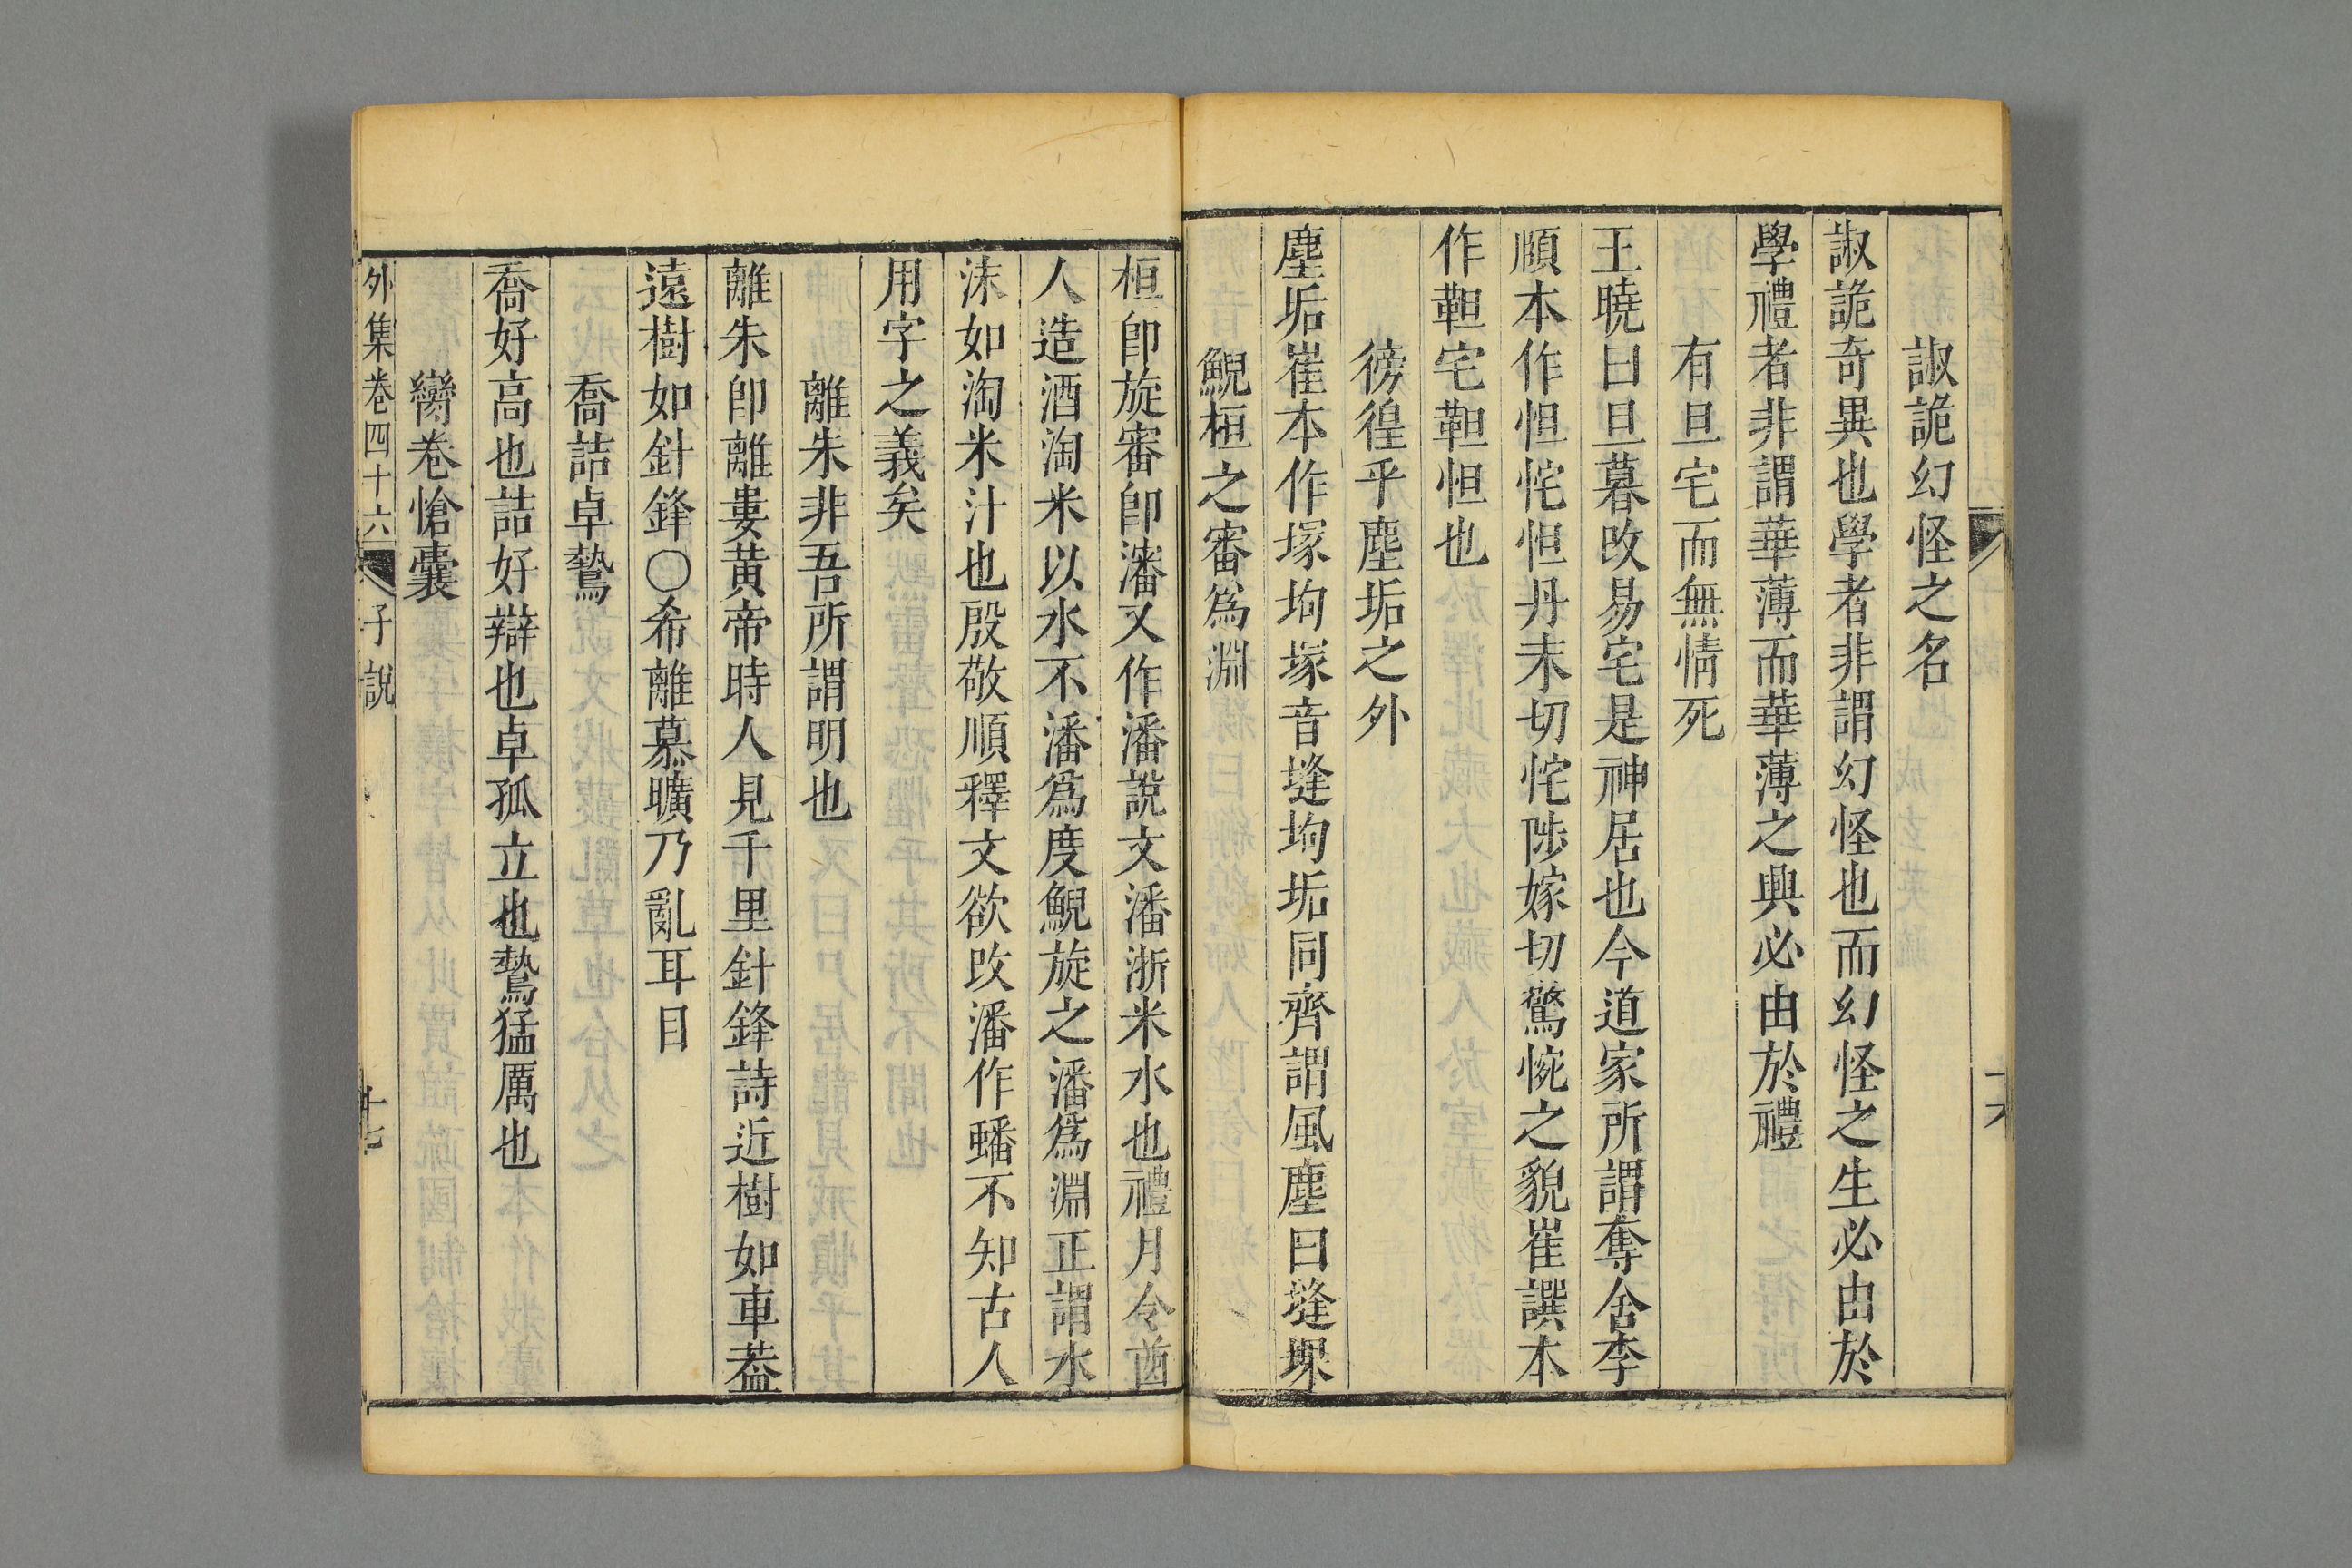 諔詭幻怪之名
諔詭奇異也學者非謂幻怪也而幻怪之生必由於
學禮者非謂華薄而華薄之興必由於禮
有旦宅而無情死
王曉曰旦暮改易宅是神居也今道家所謂奪舍李
頤本作怛恀怛丹末切恀陟嫁切驚惋之貌崔譔本
作靼宅靼怛也
徬徨乎塵垢之外
塵垢崔本作塚坸塚音塳坸垢同齊謂風塵曰塳堁
鯢桓之審為淵
桓卽旋審卽瀋又作潘說文潘淅米水也禮月令酋
人造酒淘米以水不潘爲度鯢旋之潘爲淵正謂水
沫如淘米汁也殷敬順釋文欲改潘作蟠不知古人
用字之義矣
離朱非吾所謂明也
離朱卽離婁黃帝時人見千里針鋒詩近樹如車葢
遠樹如針鋒〇希離慕曠乃亂耳目
喬詰卓鷙
喬好高也詰好辯也卓孤立也鷙猛厲也
臠卷愴囊
外集卷四十六 子說 十七